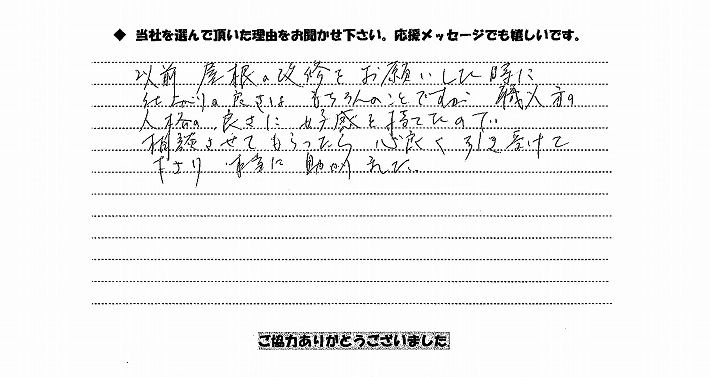 ◆ 当社を選んで頂いた理由をお聞かせ下さい。応援メッセージでも嬉しいです。
以前 屋根の改修をお願いした時に
仕上がりの良さは もちろんのことですが 職人方の
人格の良さに 好感を持てたので、
相談させてもらったら 心良く 引き受けて
下さり 本当に 助かりました。
ご協力ありがとうございました